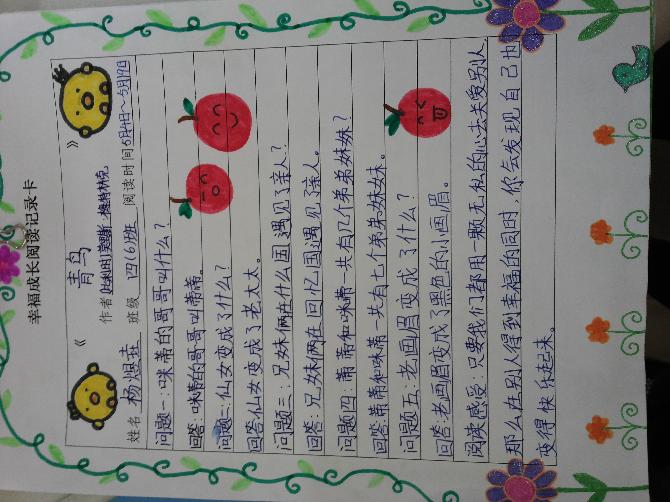 幸福成长阅读记录卡
《 青鸟 》
作者[比利时]莫里斯·梅特林克
姓名 杨煜垚 班级 四(6)班 阅读时间 5月4日~5月19日
问题一:咪蒂的哥哥叫什么?
回答:咪蒂的哥哥叫蒂蒂。
问题二:仙女变成了什么?
回答:仙女变成了老太太。
问题三:兄妹俩在什么国遇见了亲人?
回答:兄妹俩在回忆国遇见了亲人。
问题四:蒂蒂和咪蒂一共有几个弟弟妹妹?
回答:蒂蒂和咪蒂一共有七个弟弟妹妹。
问题五:老画眉变成了什么?
回答:老画眉变成了黑色的小画眉。
阅读感受:只要我们都用一颗无私的心去关爱别人
那么在别人得到幸福的同时,你会发现自己也
变得快乐起来。